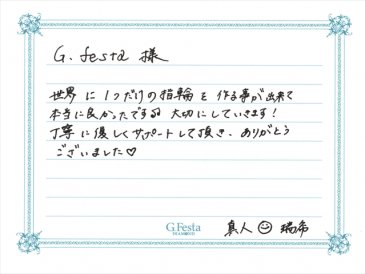 G. festa 様
世界に1つだけの指輪を作る事が出来て
本当に良かったです。大切にしていきます!
丁寧に優しくサポートして頂き、ありがとう
ございました♡
G.Festa
真人 ☺ 瑞希